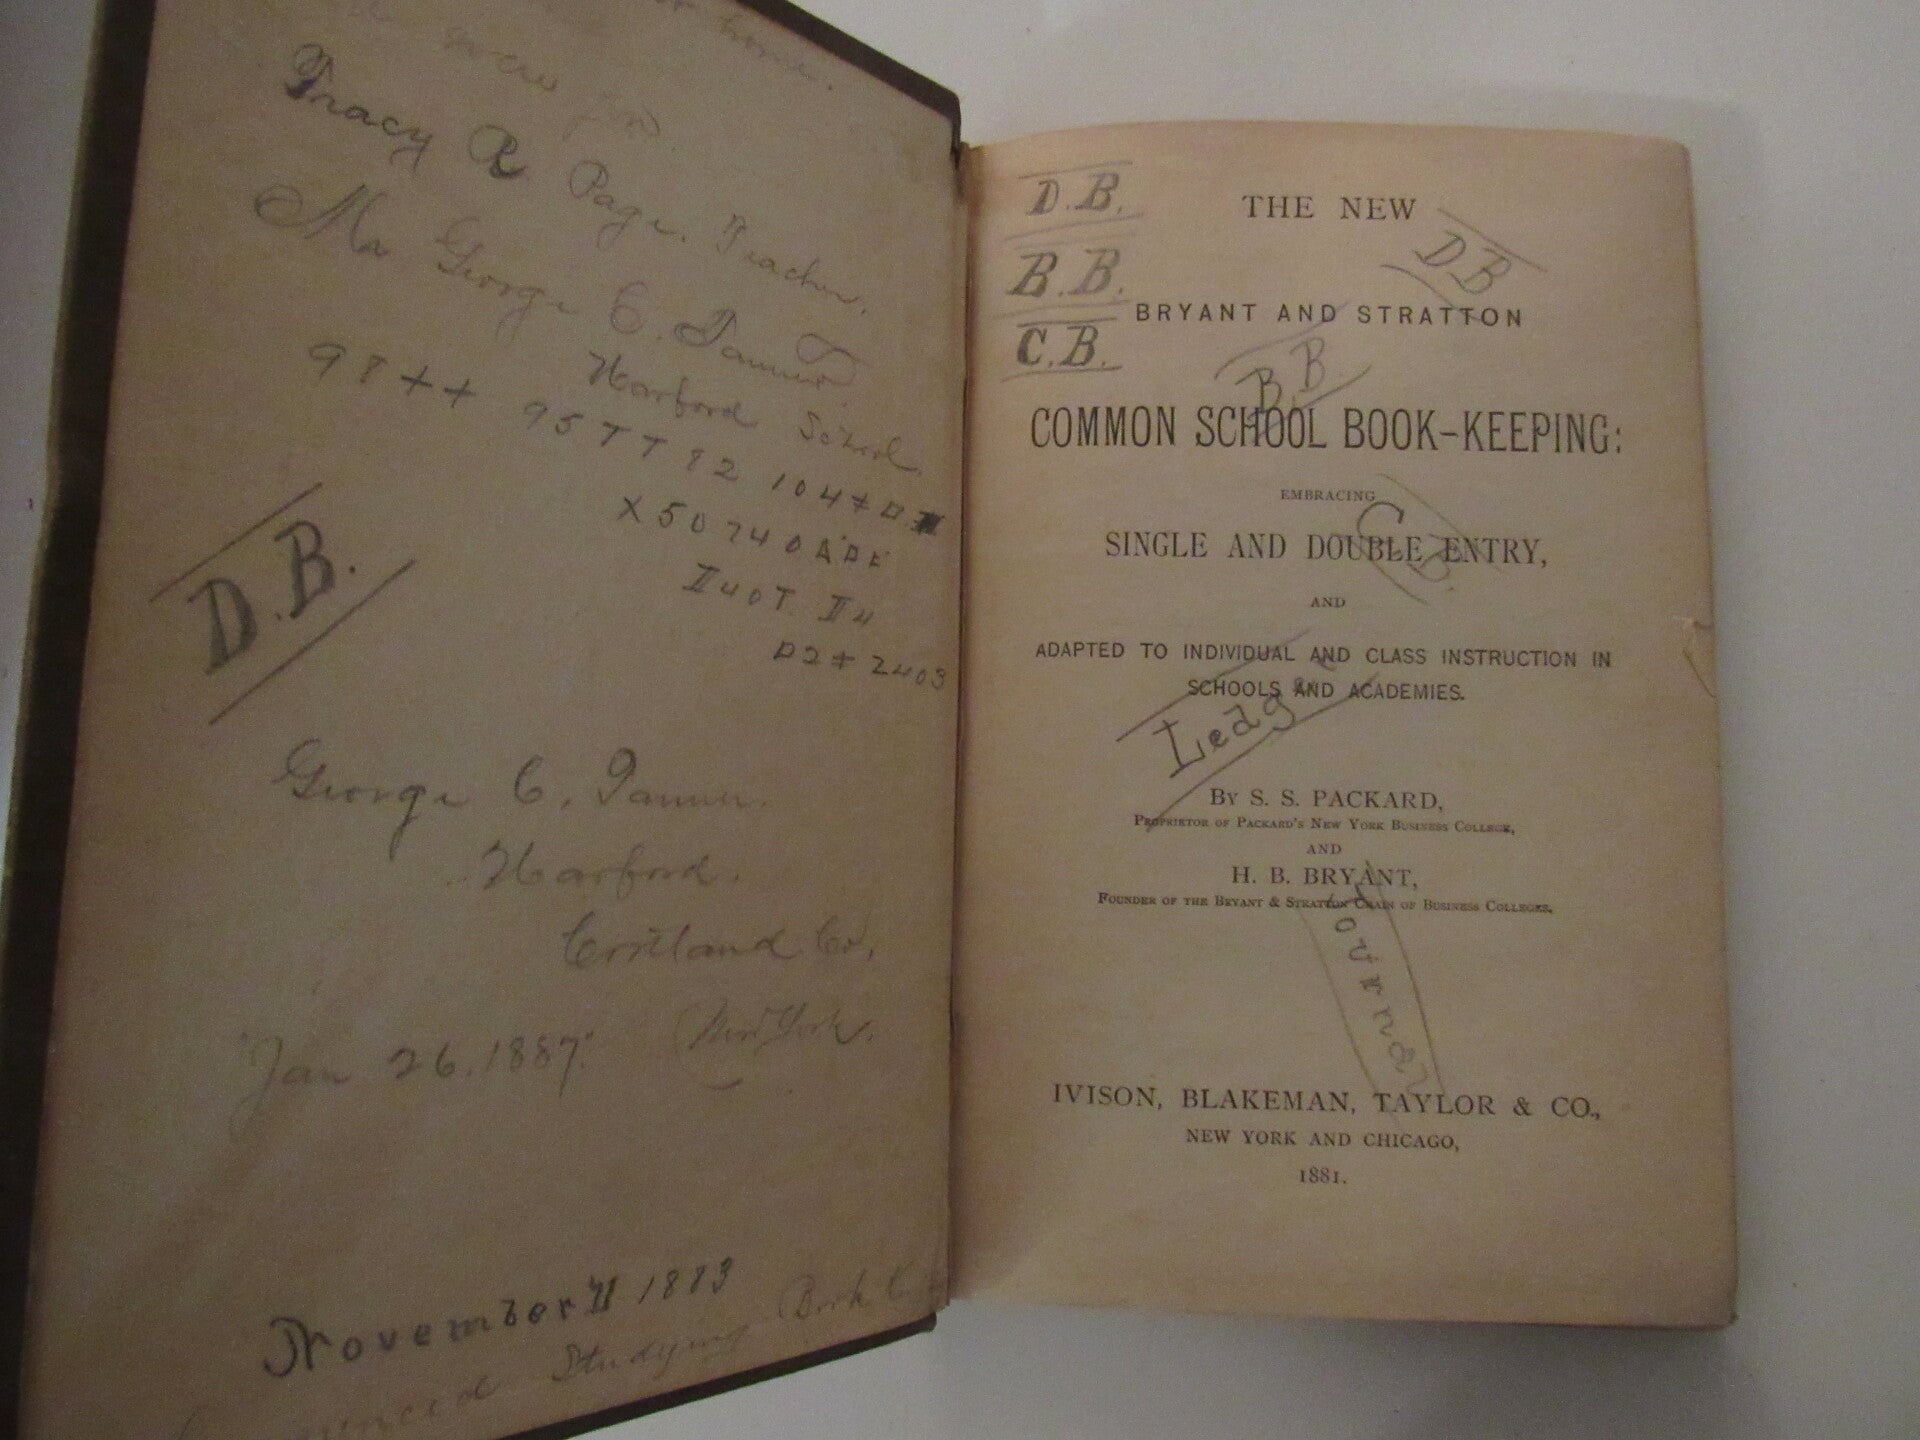 home.
Tracy R Page. Teacher.
Mr George C. Tanner.
Harford School.
D.B.
George C. Tanner.
Harford.
Cortland Co,
Jan 26. 1887.
(New York.
November 11 1883
Studying Book K
D.B.
B.B.
C.B.
THE NEW
DB
BRYANT AND STRATTON
B.B.
COMMON SCHOOL BOOK-KEEPING:
EMBRACING
SINGLE AND DOUBLE ENTRY,
C.B.
AND
ADAPTED TO INDIVIDUAL AND CLASS INSTRUCTION IN
SCHOOLS AND ACADEMIES.
Ledger
BY S. S. PACKARD,
PROPRIETOR OF PACKARD'S NEW YORK BUSINESS COLLEGE,
AND
H. B. BRYANT,
FOUNDER OF THE BRYANT & STRATTON CHAIN OF BUSINESS COLLEGES.
Journal
IVISON, BLAKEMAN, TAYLOR & CO.,
NEW YORK AND CHICAGO,
1881.